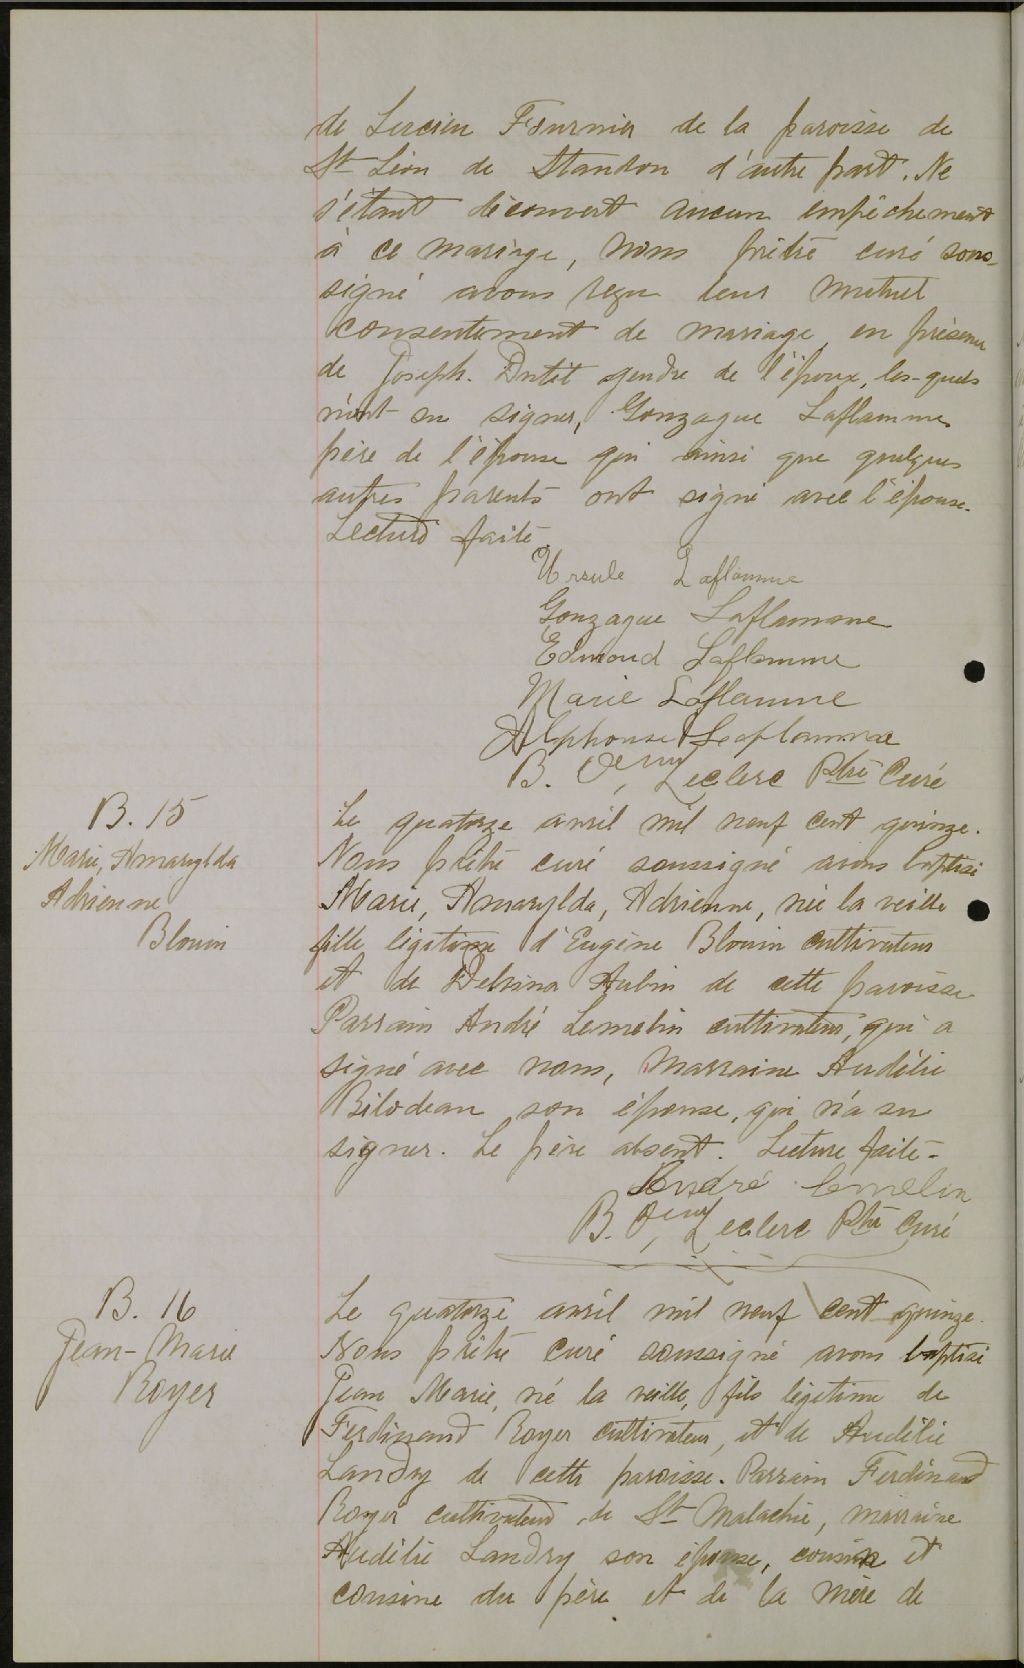 de Lucien Fournier de la paroisse de
St Léon de Standon d'autre part. Ne
s'étant découvert aucun empêchement
à ce mariage, Nous prêtre curé sous-
signé avons reçu leur mutuel
consentement de mariage en présence
de Joseph. Dutil gendre de l'époux, les-quels
n'ont su signer, Gonzague Laflamme
père de l'épouse qui ainsi que quelques
autres parents ont signé avec l'épouse.
Lecture faite.
Ursule Laflamme
Gonzague Laflamme
Edmond Laflamme
Marie Laflamme
Alphonse Laflamme
B. Leclerc Ptre Curé
B. 15
Marie, Amarylda
Adrienne
Blouin
Le quatorze avril mil neuf cent quinze.
Nous prêtre curé soussigné avons baptisé
Marie, Amarylda, Adrienne, née la veille
fille légitime d'Eugène Blouin cultivateur
et de Delvina Aubin de cette paroisse
Parrain André Lemelin cultivateur, qui a
signé avec nous, Marraine Audélie
Bilodeau son épouse, qui n'a su
signer. Le père absent. Lecture faite-
André Lemelin
B. Leclerc Ptre Curé
B. 16
Jean-Marie
Royer
Le quatorze avril mil neuf cent quinze.
Nous prêtre curé soussigné avons baptisé
Jean Marie, né la veille, fils légitime de
Ferdinand Royer cultivateur, et de Audélie
Landry de cette paroisse. Parrain Ferdinand
Royer cultivateur de St Malachie, marraine
Audélie Landry son épouse, cousin et
cousine du père et de la mère de